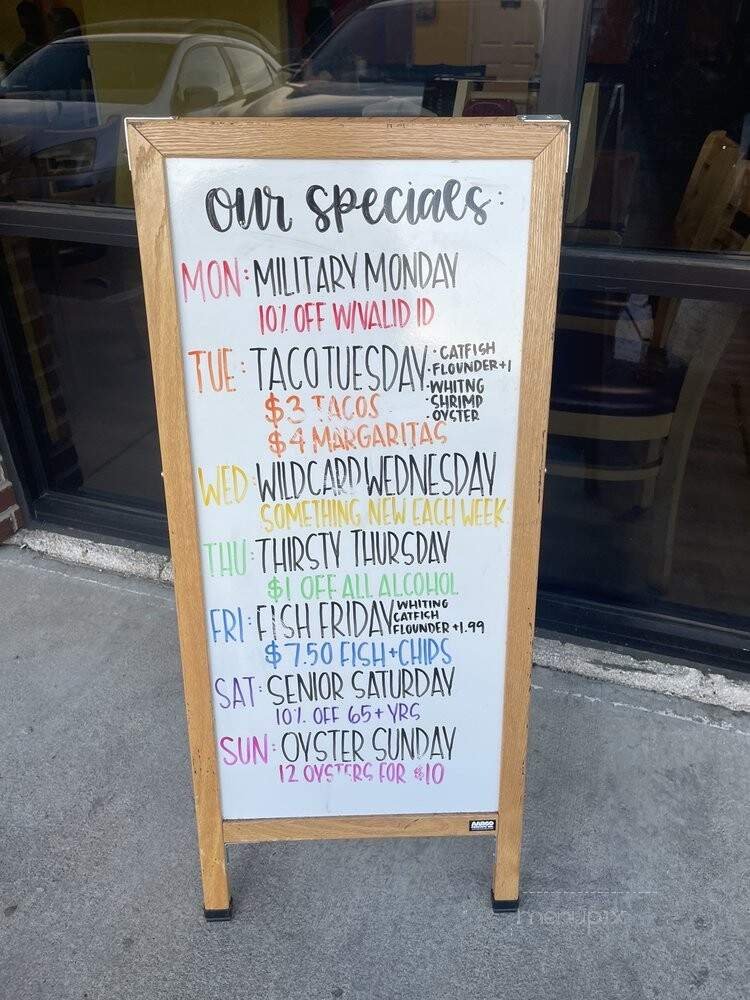 our specials:
MON: MILITARY MONDAY
10% OFF W/VALID ID
TUE: TACO TUESDAY
· CATFISH
· FLOUNDER +1
· WHITNG
· SHRIMP
· OYSTER
$3 TACOS
$4 MARGARITAS
WED: WILDCARD WEDNESDAY
SOMETHING NEW EACH WEEK
THU: THIRSTY THURSDAY
$1 OFF ALL ALCOHOL
FRI: FISH FRIDAY
WHITING
CATFISH
FLOUNDER +1.99
$7.50 FISH + CHIPS
SAT: SENIOR SATURDAY
10% OFF 65+ YRS
SUN: OYSTER SUNDAY
12 OYSTERS FOR $10
AARCO
menupix